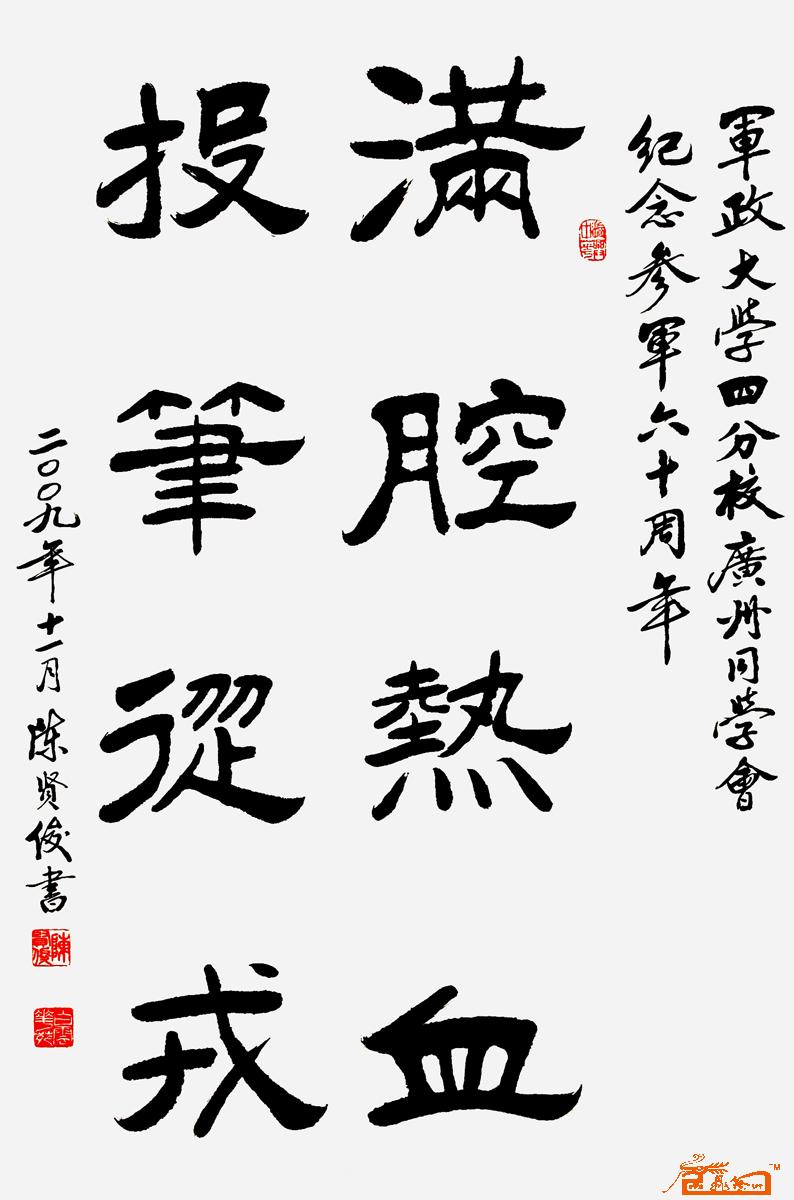 軍政大學四分校廣州同學會
紀念參軍六十周年
滿腔熱血
投筆從戎
二〇〇九年十一月 陈贤俊書
陳賢俊